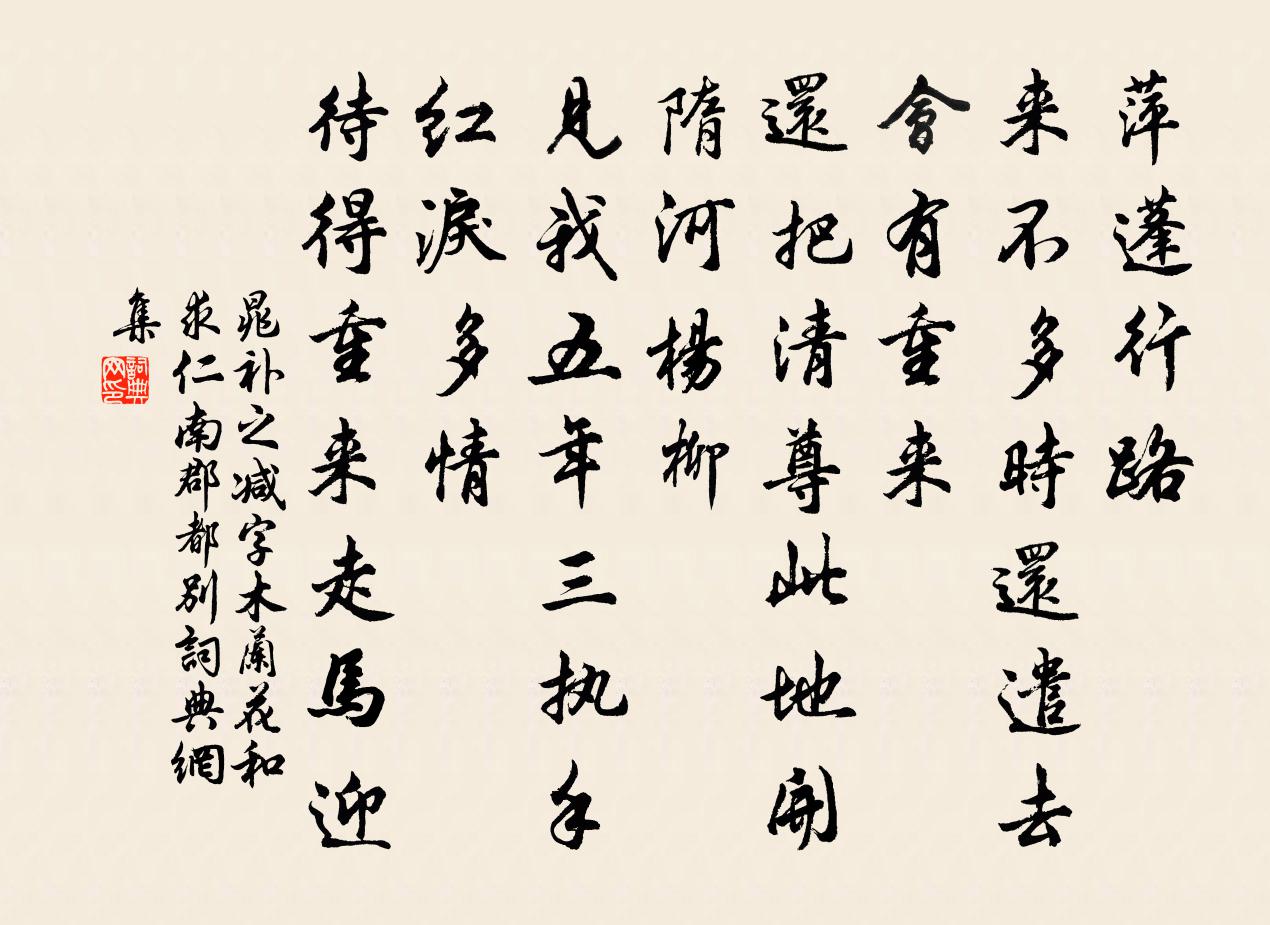 萍蓬行路
来不多時還遣去
會有重来
還把清尊此地開
隋河楊柳
見我五年三执手
红淚多情
待得重来走馬迎
晁补之减字木蘭花和
求仁南郡都別詞典網
集
詞典网印